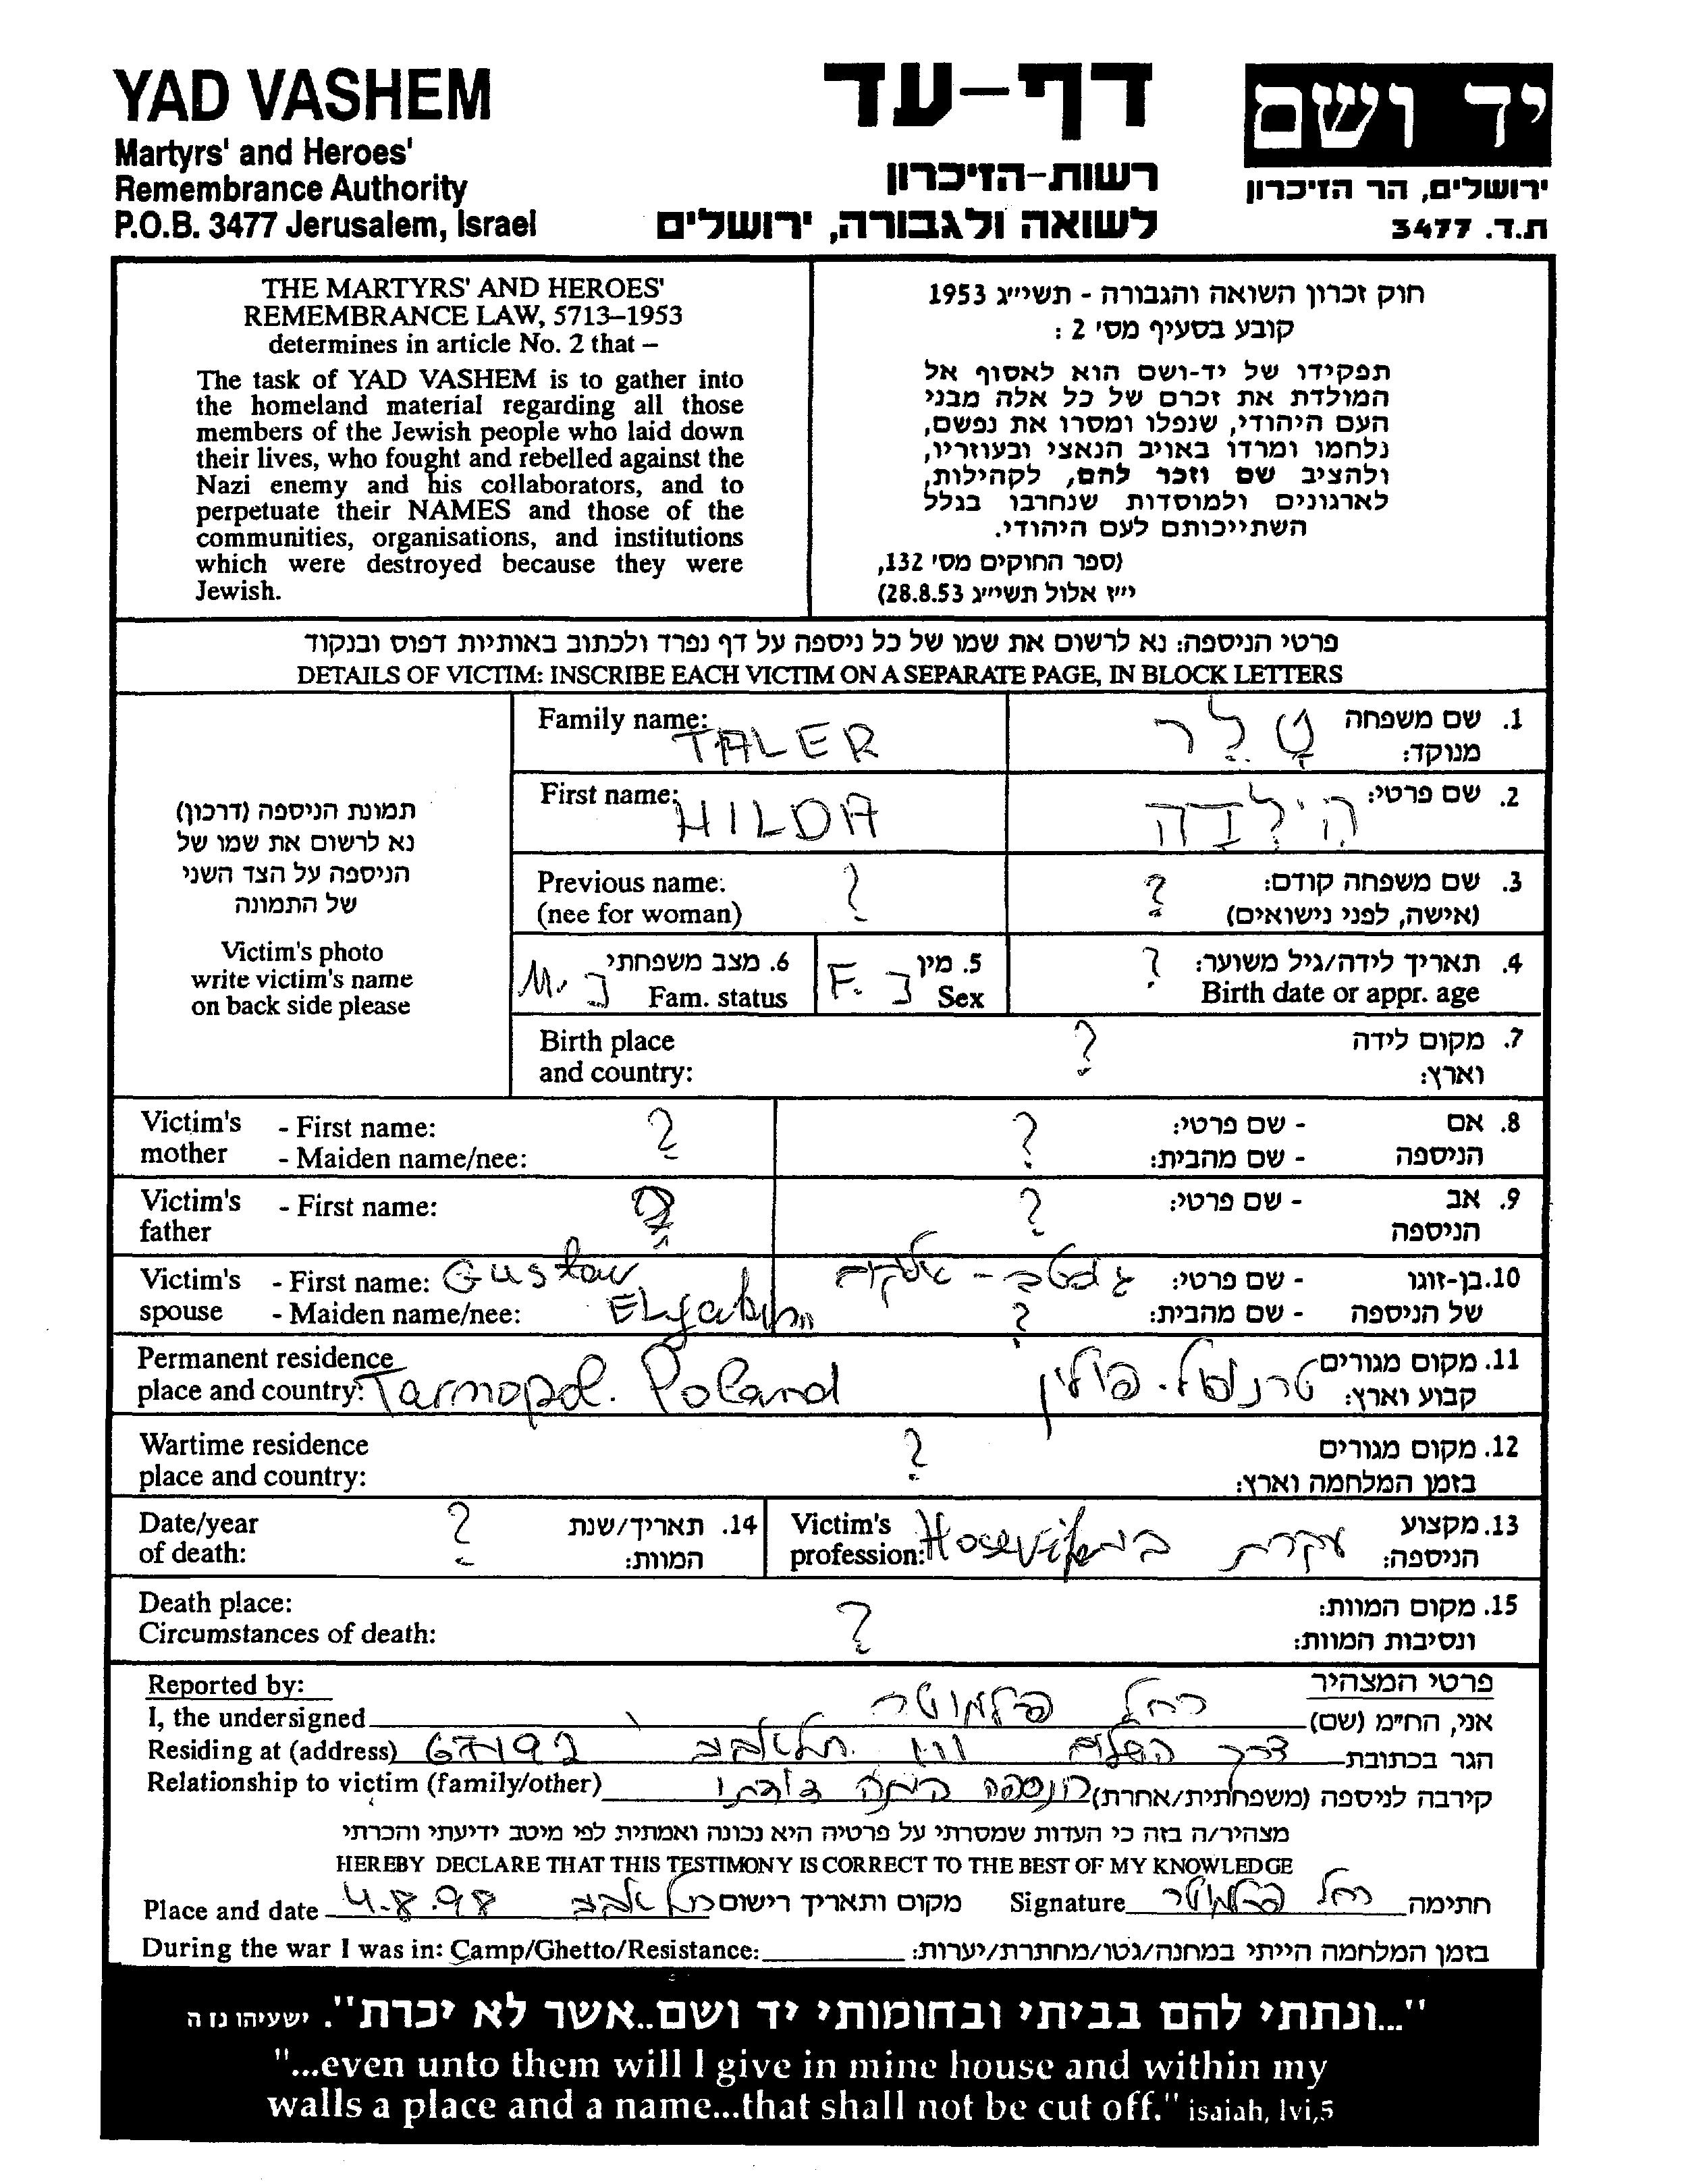 YAD VASHEM
Martyrs' and Heroes'
Remembrance Authority
P.O.B. 3477 Jerusalem, Israel
דף-עד
רשות-הזיכרון
לשואה ולגבורה, ירושלים
יד ושם
ירושלים, הר הזיכרון
ת.ד. 3477
THE MARTYRS' AND HEROES'
REMEMBRANCE LAW, 5713–1953
determines in article No. 2 that –
The task of YAD VASHEM is to gather into
the homeland material regarding all those
members of the Jewish people who laid down
their lives, who fought and rebelled against the
Nazi enemy and his collaborators, and to
perpetuate their NAMES and those of the
communities, organisations, and institutions
which were destroyed because they were
Jewish.
חוק זכרון השואה והגבורה - תשי״ג 1953
קובע בסעיף מס׳ 2 :
תפקידו של יד-ושם הוא לאסוף אל
המולדת את זכרם של כל אלה מבני
העם היהודי, שנפלו ומסרו את נפשם,
נלחמו ומרדו באויב הנאצי ובעוזריו,
ולהציב שם וזכר להם, לקהילות,
לארגונים ולמוסדות שנחרבו בגלל
השתייכותם לעם היהודי.
(ספר החוקים מס׳ 132,
י״ז אלול תשי״ג 28.8.53)
פרטי הניספה: נא לרשום את שמו של כל ניספה על דף נפרד ולכתוב באותיות דפוס ובנקוד
DETAILS OF VICTIM: INSCRIBE EACH VICTIM ON A SEPARATE PAGE, IN BLOCK LETTERS
תמונת הניספה (דרכון)
נא לרשום את שמו של
הניספה על הצד השני
של התמונה
Victim's photo
write victim's name
on back side please
Family name: TALER טָלֵר 1. שם משפחה
מנוקד:
First name: HILDA הִילְדָה 2. שם פרטי:
Previous name: ? ? 3. שם משפחה קודם:
(nee for woman) (אישה, לפני נישואים)
M. נ 6. מצב משפחתי F. נ 5. מין ? 4. תאריך לידה/גיל משוער:
Fam. status Sex Birth date or appr. age
Birth place ? 7. מקום לידה
and country: וארץ:
Victim's - First name: ? ? - שם פרטי: 8. אם
mother - Maiden name/nee: - שם מהבית: הניספה
Victim's - First name: ? ? - שם פרטי: 9. אב
father הניספה
Victim's - First name: Gustav - שם פרטי: 10. בן-זוגו
spouse - Maiden name/nee: ? - שם מהבית: של הניספה
Permanent residence 11. מקום מגורים
place and country: Tarnopol. Poland טרנופול. פולין קבוע וארץ:
Wartime residence ? 12. מקום מגורים
place and country: בזמן המלחמה וארץ:
Date/year ? 14. תאריך/שנת Victim's 13. מקצוע
of death: המוות: profession: Hosevife עקרת בית הניספה:
Death place: ? 15. מקום המוות:
Circumstances of death: ונסיבות המוות:
Reported by: פרטי המצהיר
I, the undersigned רחל אני, הח״מ (שם)
Residing at (address) 67192 תל אביב דרך השלום הגר בכתובת
Relationship to victim (family/other) הנספה היתה דודתי קירבה לניספה (משפחתית/אחרת)
מצהיר/ה בזה כי העדות שמסרתי על פרטיה היא נכונה ואמתית לפי מיטב ידיעתי והכרתי
HEREBY DECLARE THAT THIS TESTIMONY IS CORRECT TO THE BEST OF MY KNOWLEDGE
Place and date 4.8.98 תל אביב מקום ותאריך רישום Signature רחל חתימה
During the war I was in: Camp/Ghetto/Resistance: בזמן המלחמה הייתי במחנה/גטו/מחתרת/יערות:
"...ונתתי להם בביתי ובחומותי יד ושם..אשר לא יכרת". ישעיהו נו ה
"...even unto them will I give in mine house and within my
walls a place and a name...that shall not be cut off." isaiah, lvi,5